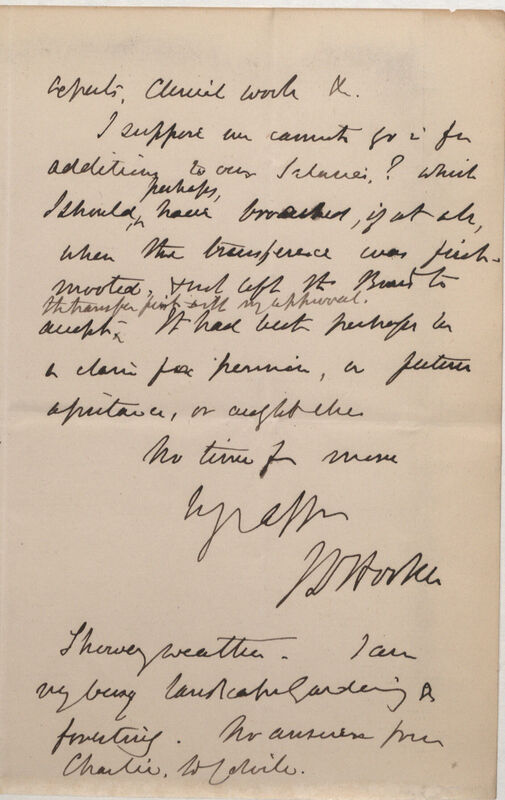 reports, Clerical work &c.
I suppose we cannot go in for
additions to our Salaries? which
perhaps,
I should, have broached, if at all,
when the transference was first
mooted, & not left the Board to
the transfer first with my approval.
accept. It had best perhaps be
a claim for pension, or future
assistance, or aught else
No time for more
Yrs aff
J D Hooker
Showery weather. I am
very busy landscape Gardening &
foresting. No answer from
Charlie.